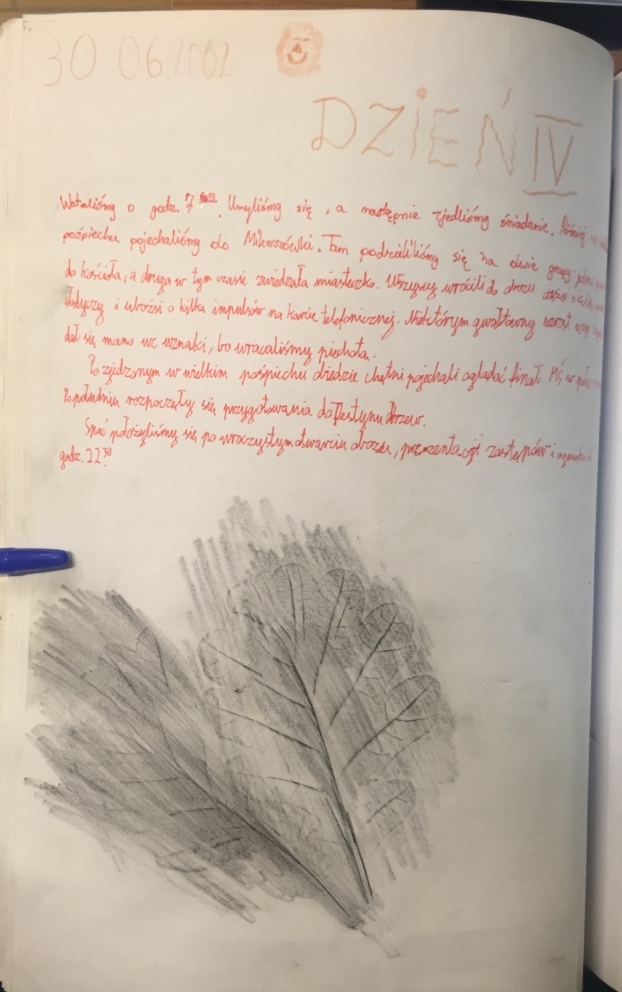 30 06.2002
DZIEŃ IV
Wstaliśmy o godz. 7. Umyliśmy się, a następnie zjedliśmy śniadanie. Później w
pośpiechu pojechaliśmy do Mikaszówki. Tam podzieliliśmy się na dwie grupy: jedna
do kościoła, a druga w tym czasie zwiedzała miasteczko. Wszyscy wrócili do obozu
i ubożsi o kilka impulsów na karcie telefonicznej. Niektórym gwałtowny wzrost wagi
dał się mano we wznaki, bo wracaliśmy piechotą.
Po zjedzonym w wielkim pośpiechu obiedzie chętni pojechali oglądać finał MŚ w
Po południu rozpoczęły się przygotowania do Festynu Drzew.
Spać położyliśmy się po uroczystym otwarciu obozu, prezentacji zastępów i ognisku
godz. 22³⁰